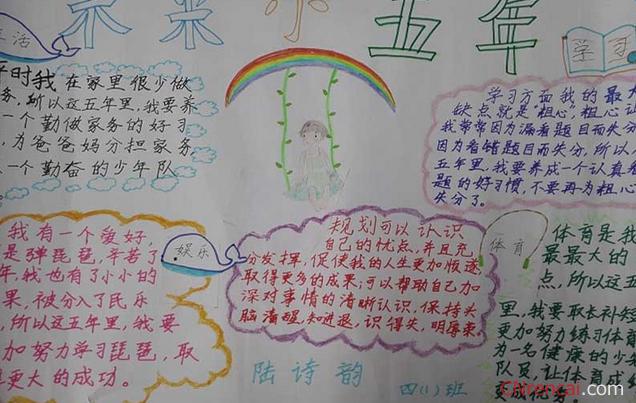 未来小五年
生活
平时我在家里很少做
务,所以这五年里,我要养
一个勤做家务的好习
,为爸爸妈分担家务
一个勤奋的少年队
学习
学习方面我的最大
缺点就是粗心,粗心让
我常常因为漏看题目而失分
因为看错题目而失分,所以
五年里,我要养成一个认真
题的好习惯,不要再为粗心
失分了。
我有一个爱好,
是弹琵琶,辛苦了
年,我也有了小小的
果,被分入了民乐
,所以这五年里,我要
加努力学习琵琶,取
得更大的成功。
娱乐
规划可以认识
自己的优点,并且充
分发挥,促使我的人生更加恒逐
取得更多的成果;可以帮助自己加
深对事情的清晰认识,保持头
脑清醒,知进退,识得失,明厚
体育
体育是我
最最大的
点,所以这
里,我要取长补短
更加努力练习体育
为一名健康的少
队员,让体育成
变成优秀。
陆诗韵
四(1)班
Chirencai.com